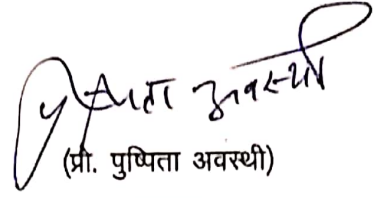 पुष्पिता अवस्थी
(प्रो. पुष्पिता अवस्थी)